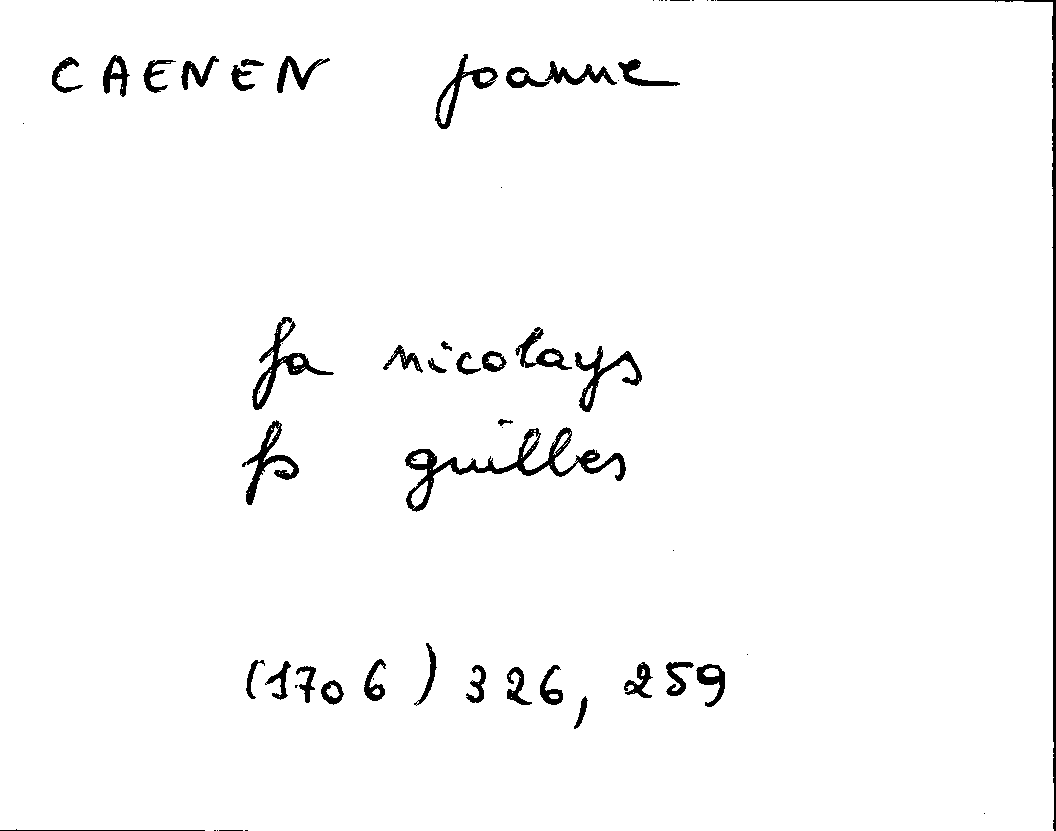 CAENEN joanne
fa nicolays
fs guilles
(1706) 326, 259